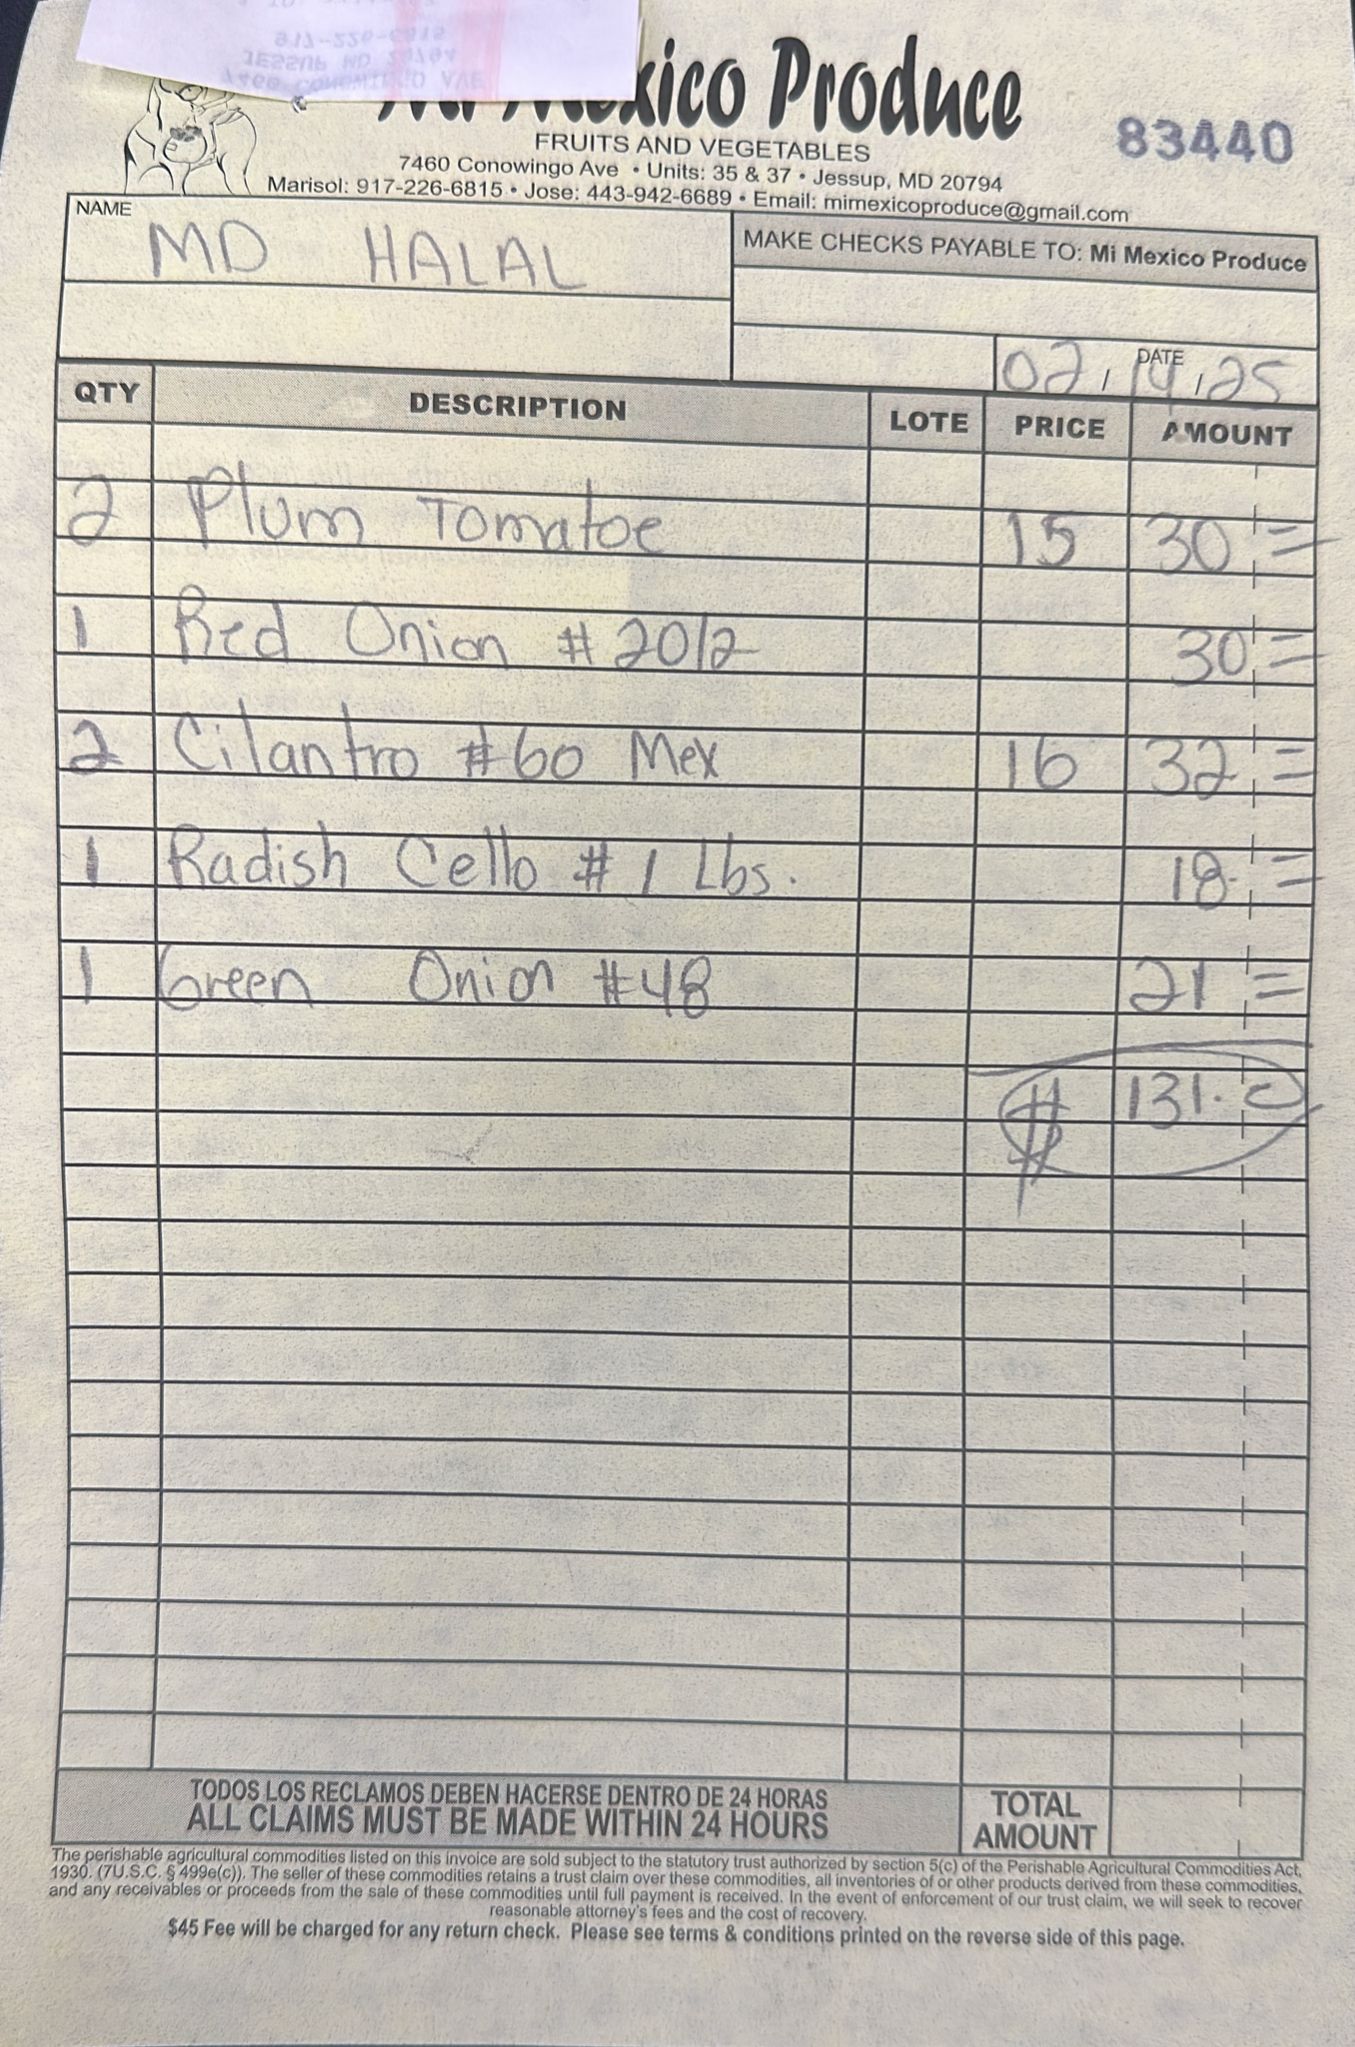 Mi Mexico Produce
FRUITS AND VEGETABLES
83440
7460 Conowingo Ave • Units: 35 & 37 • Jessup, MD 20794
Marisol: 917-226-6815 • Jose: 443-942-6689 • Email: mimexicoproduce@gmail.com
NAME
MD HALAL
MAKE CHECKS PAYABLE TO: Mi Mexico Produce
DATE
02, 25
QTY DESCRIPTION LOTE PRICE AMOUNT
2 Plum Tomatoe 15 30 =
1 Red Onion # 2012 30 =
2 Cilantro #60 Mex 16 32 =
1 Radish Cello # 1 Lbs. 18 =
1 Green Onion #48 21 =
$ 131.
TODOS LOS RECLAMOS DEBEN HACERSE DENTRO DE 24 HORAS
ALL CLAIMS MUST BE MADE WITHIN 24 HOURS
TOTAL AMOUNT
The perishable agricultural commodities listed on this invoice are sold subject to the statutory trust authorized by section 5(c) of the Perishable Agricultural Commodities Act,
1930. (7U.S.C. § 499e(c)). The seller of these commodities retains a trust claim over these commodities, all inventories of or other products derived from these commodities,
and any receivables or proceeds from the sale of these commodities until full payment is received. In the event of enforcement of our trust claim, we will seek to recover
reasonable attorney's fees and the cost of recovery.
$45 Fee will be charged for any return check. Please see terms & conditions printed on the reverse side of this page.